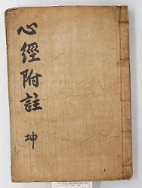 心經附註
坤